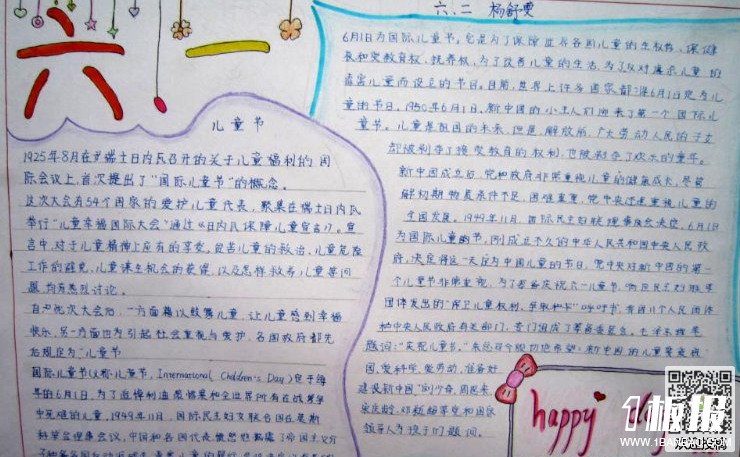 六一
六、二 杨舒雯
儿童节
1925年8月在瑞士日内瓦召开的关于儿童福利的国
际会议上,首次提出了"国际儿童节"的概念。
这次大会有54个国家的爱护儿童代表,聚集在瑞士日内瓦
举行"儿童幸福国际大会"通过《日内瓦保障儿童宣言》。宣
言中,对于儿童精神上应有的享受,贫苦儿童的救治,儿童危险
工作的避免,儿童谋生机会的获得,以及怎样救养儿童等问
题,均有热烈讨论。
自此次大会后,一方面藉以鼓舞儿童,让儿童感到幸福
快乐,另一方面也为引起社会重视与爱护,各国政府都先
后规定为"儿童节
国际儿童节(又称儿童节,International Children's Day)定于每
年的6月1日。为了
中死难的儿童,1949年11月,国际民主妇女联合会在莫斯
科举
6月1日为国际儿童节,它是为了保障世界各国儿童的生权、保健
权和受教育权、抚养权,为了改善儿童的生活,为了反对虐杀儿童和
毒害儿童而设立的节日。目前,世界上许多国家都将6月1日定为儿
童的节日。1950年6月1日,新中国的小主人们迎来了第一个国际儿
童节。儿童是祖国的未来,但是,解放前,广大劳动人民的子女
都被剥夺了接受教育的权利,也被剥夺了欢乐的童年。
新中国成立后,党和政府非常重视儿童的健康成长,尽管
解放初期物质条件不足,困难重重,党中央还是重视儿童的
全面发展。1949年11月,国际民主妇联理事会决定,6月1日
为国际儿童的节,刚成立不久的中华人民共和国中央人民政
府,决定将这一天定为中国儿童的节日,党中央对新中国的第一
个儿童节非常重视,为了筹备庆祝六一儿童节,响应民主妇联等
团体发出的"保卫儿童权利,争取和平"的呼吁书,有
和中央人民政府有关部门,专门组成了筹备委员会。毛泽东题
题词:"庆祝儿童节。"朱总司令殷切地希望:新中国的儿童要爱祖
国,爱科学,爱劳动,准备好
建设新中国"刘少奇、周恩来、
宋庆龄、邓颖超等党和国家
领导人为孩子们题词。
happy day
1板报
WWW.1BANBAO.COM
欢迎投稿